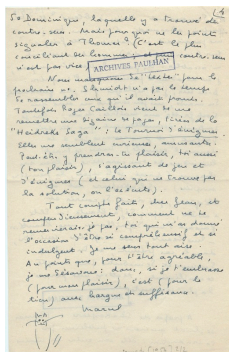 So Dominique, laquelle y a trouvé de
contre-sens. Mais pourquoi ne les point
signaler à Thomas? (C'est le plus
conciliant des hommes; et
n'est pas vice)
ARCHIVES PAULHAN
Nous manquons de "texte" pour le
prochain n°. Schmidt n'a pas le temps
de rassembler ceux qu'il avait promis.
Toutefois Roger Caillois vient de me
remettre une dizaine de pages, tirées de la
"Heidreks Saga": le Tournoi d'énigmes.
Elles me semblent curieuses, amusantes.
Peut-être y prendras-tu plaisir, toi aussi
(ton plaisir), s'agissant de jeu et
d'énigmes (et celui qui ne trouve pas
la solution, on l'occit).
Tout compte fait, cher Jean, et
comment ne te
remercierais-je pas, toi qui m'as donné
l'occasion d'être si compréhensif et si
indulgent. Je me sens tout aise.
Au point que, pour t'être agréable,
je me : donc, si je t'embrasse
(pour mon plaisir), c'est (pour le
tien) avec hargne et suffisance.
Marcel